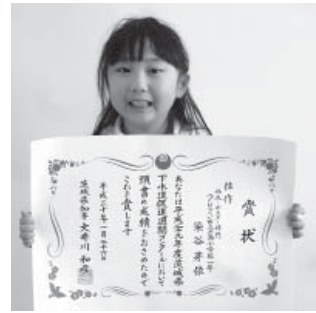 賞状
佳作
小学校一年
染谷 芽依
あなたは平成二十九年度茨城県
下水道促進週間コンクールにおいて
頭書の成績をおさめたので
これを賞します
平成三十年一月二十六日
茨城県知事 大井川 和彦